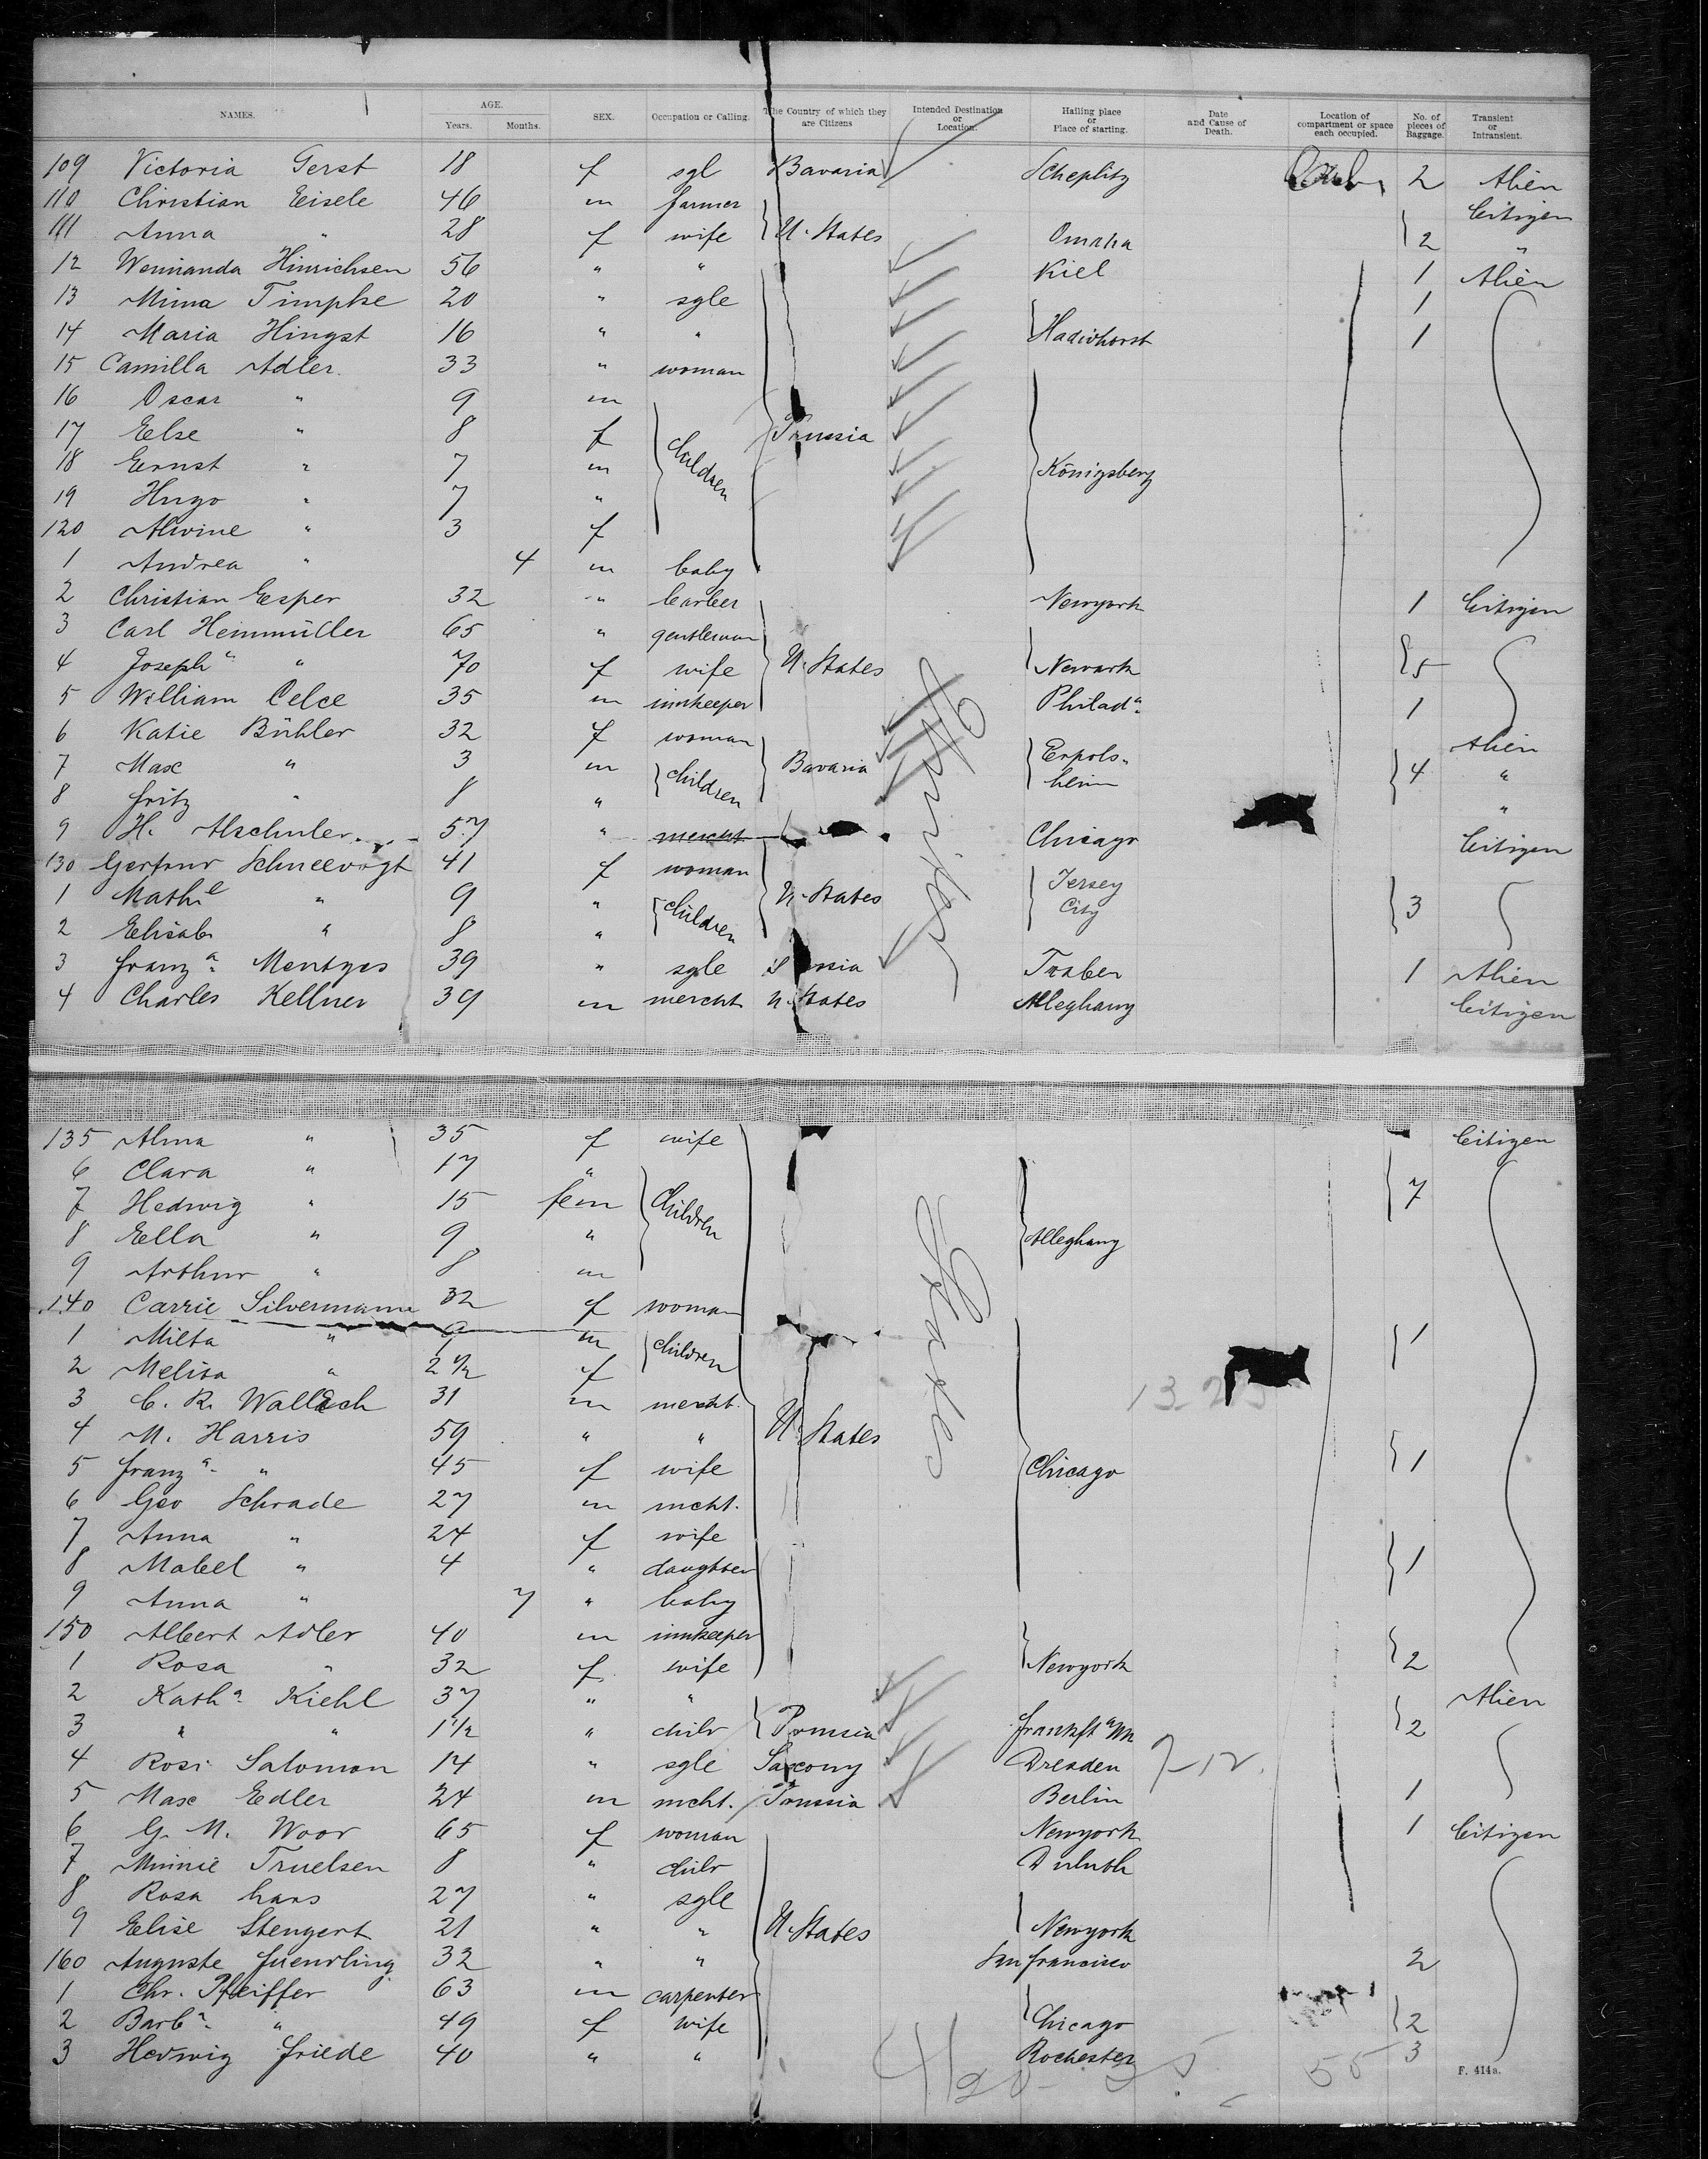 NAMES. AGE. Years. Months. SEX. Occupation or Calling. The Country of which they are Citizens Intended Destination or Location. Hailing place or Place of starting. Date and Cause of Death. Location of compartment or space each occupied. No. of pieces of Baggage. Transient or Intransient.
109 Victoria Gerst 18 f sgl Bavaria Scheplitz 2 Alien
110 Christian Eisele 46 m farmer Citizen
111 Anna " 28 f wife U. States Omaha 2 "
12 Hinrichsen 56 " " Kiel 1 Alien
13 Mima Timphe 20 " sgle 1
14 Maria Hingst 16 " " 1
15 Camilla Adler. 33 " woman
16 Oscar " 9 m
17 Eelse " 8 f children Prussia
18 Ernst " 7 m Königsberg
19 Hugo " 7 "
120 Alwine " 3 f
1 Andrea " 4 m baby
2 Christian Esper 32 " barber Newyork 1 Citizen
3 Carl Heinmüller 65 " gentleman
4 Joseph a " 70 f wife U. States Newark 5
5 William Celce 35 m innkeeper Philad a. 1
6 Katie Bühler 32 f woman Alien
7 Max " 3 m children Bavaria Erpols-heim 4 "
8 Fritz " 8 " "
9 H. Alschuler 57 " mercht Chicago Citizen
130 Schneevogt 41 f woman
1 Math l " 9 " children U. States Jersey City 3
2 Elisab. " 8 "
3 Franz a. Mentges 39 " sgle Traber 1 Alien
4 Charles Kellner 39 m mercht U. States Alleghany Citizen
135 Alma " 35 f wife Citizen
6 Clara " 17 " 7
7 Hedwig " 15 fem children
8 Ella " 9 " Alleghany
9 Arthur " 8 m
140 Carrie Silvermann 32 f woman
1 Milta " 9 m children 1
2 Melisa " 2 1/2 f
3 C. R. Wallach 31 m mercht. 13
4 M. Harris 59 " " U. States
5 Franz a. " 45 f wife Chicago 1
6 Geo Schrade 27 m mcht.
7 Anna " 24 f wife
8 Mabel " 4 " daughter 1
9 Anna " 7 " baby
150 Albert Adler 40 m innkeeper
1 Rosa " 32 f. wife Newyork 2
2 Kath a. Kiehl 37 " " Alien
3 " " 1 1/2 " child Prussia Frankft a/M 2
4 Rosi Salomon 14 " sgle Saxony Dresden
5 Max Edler 24 m mcht. Prussia Berlin 1
6 G. M. Wood 65 f woman Newyork 1 Citizen
7 Minnie Truelsen 8 " child Duluth
8 Rosa Haas 27 " sgle
9 Elise Stengert 21 " " U. States Newyork
160 Auguste Fuendling 32 " " San Francisco 2
1 Chr. Pfeiffer 63 m carpenter
2 Barb a. " 49 f wife Chicago 2
3 Hedwig Friede 40 " " Rochester 3
55
F. 414a.